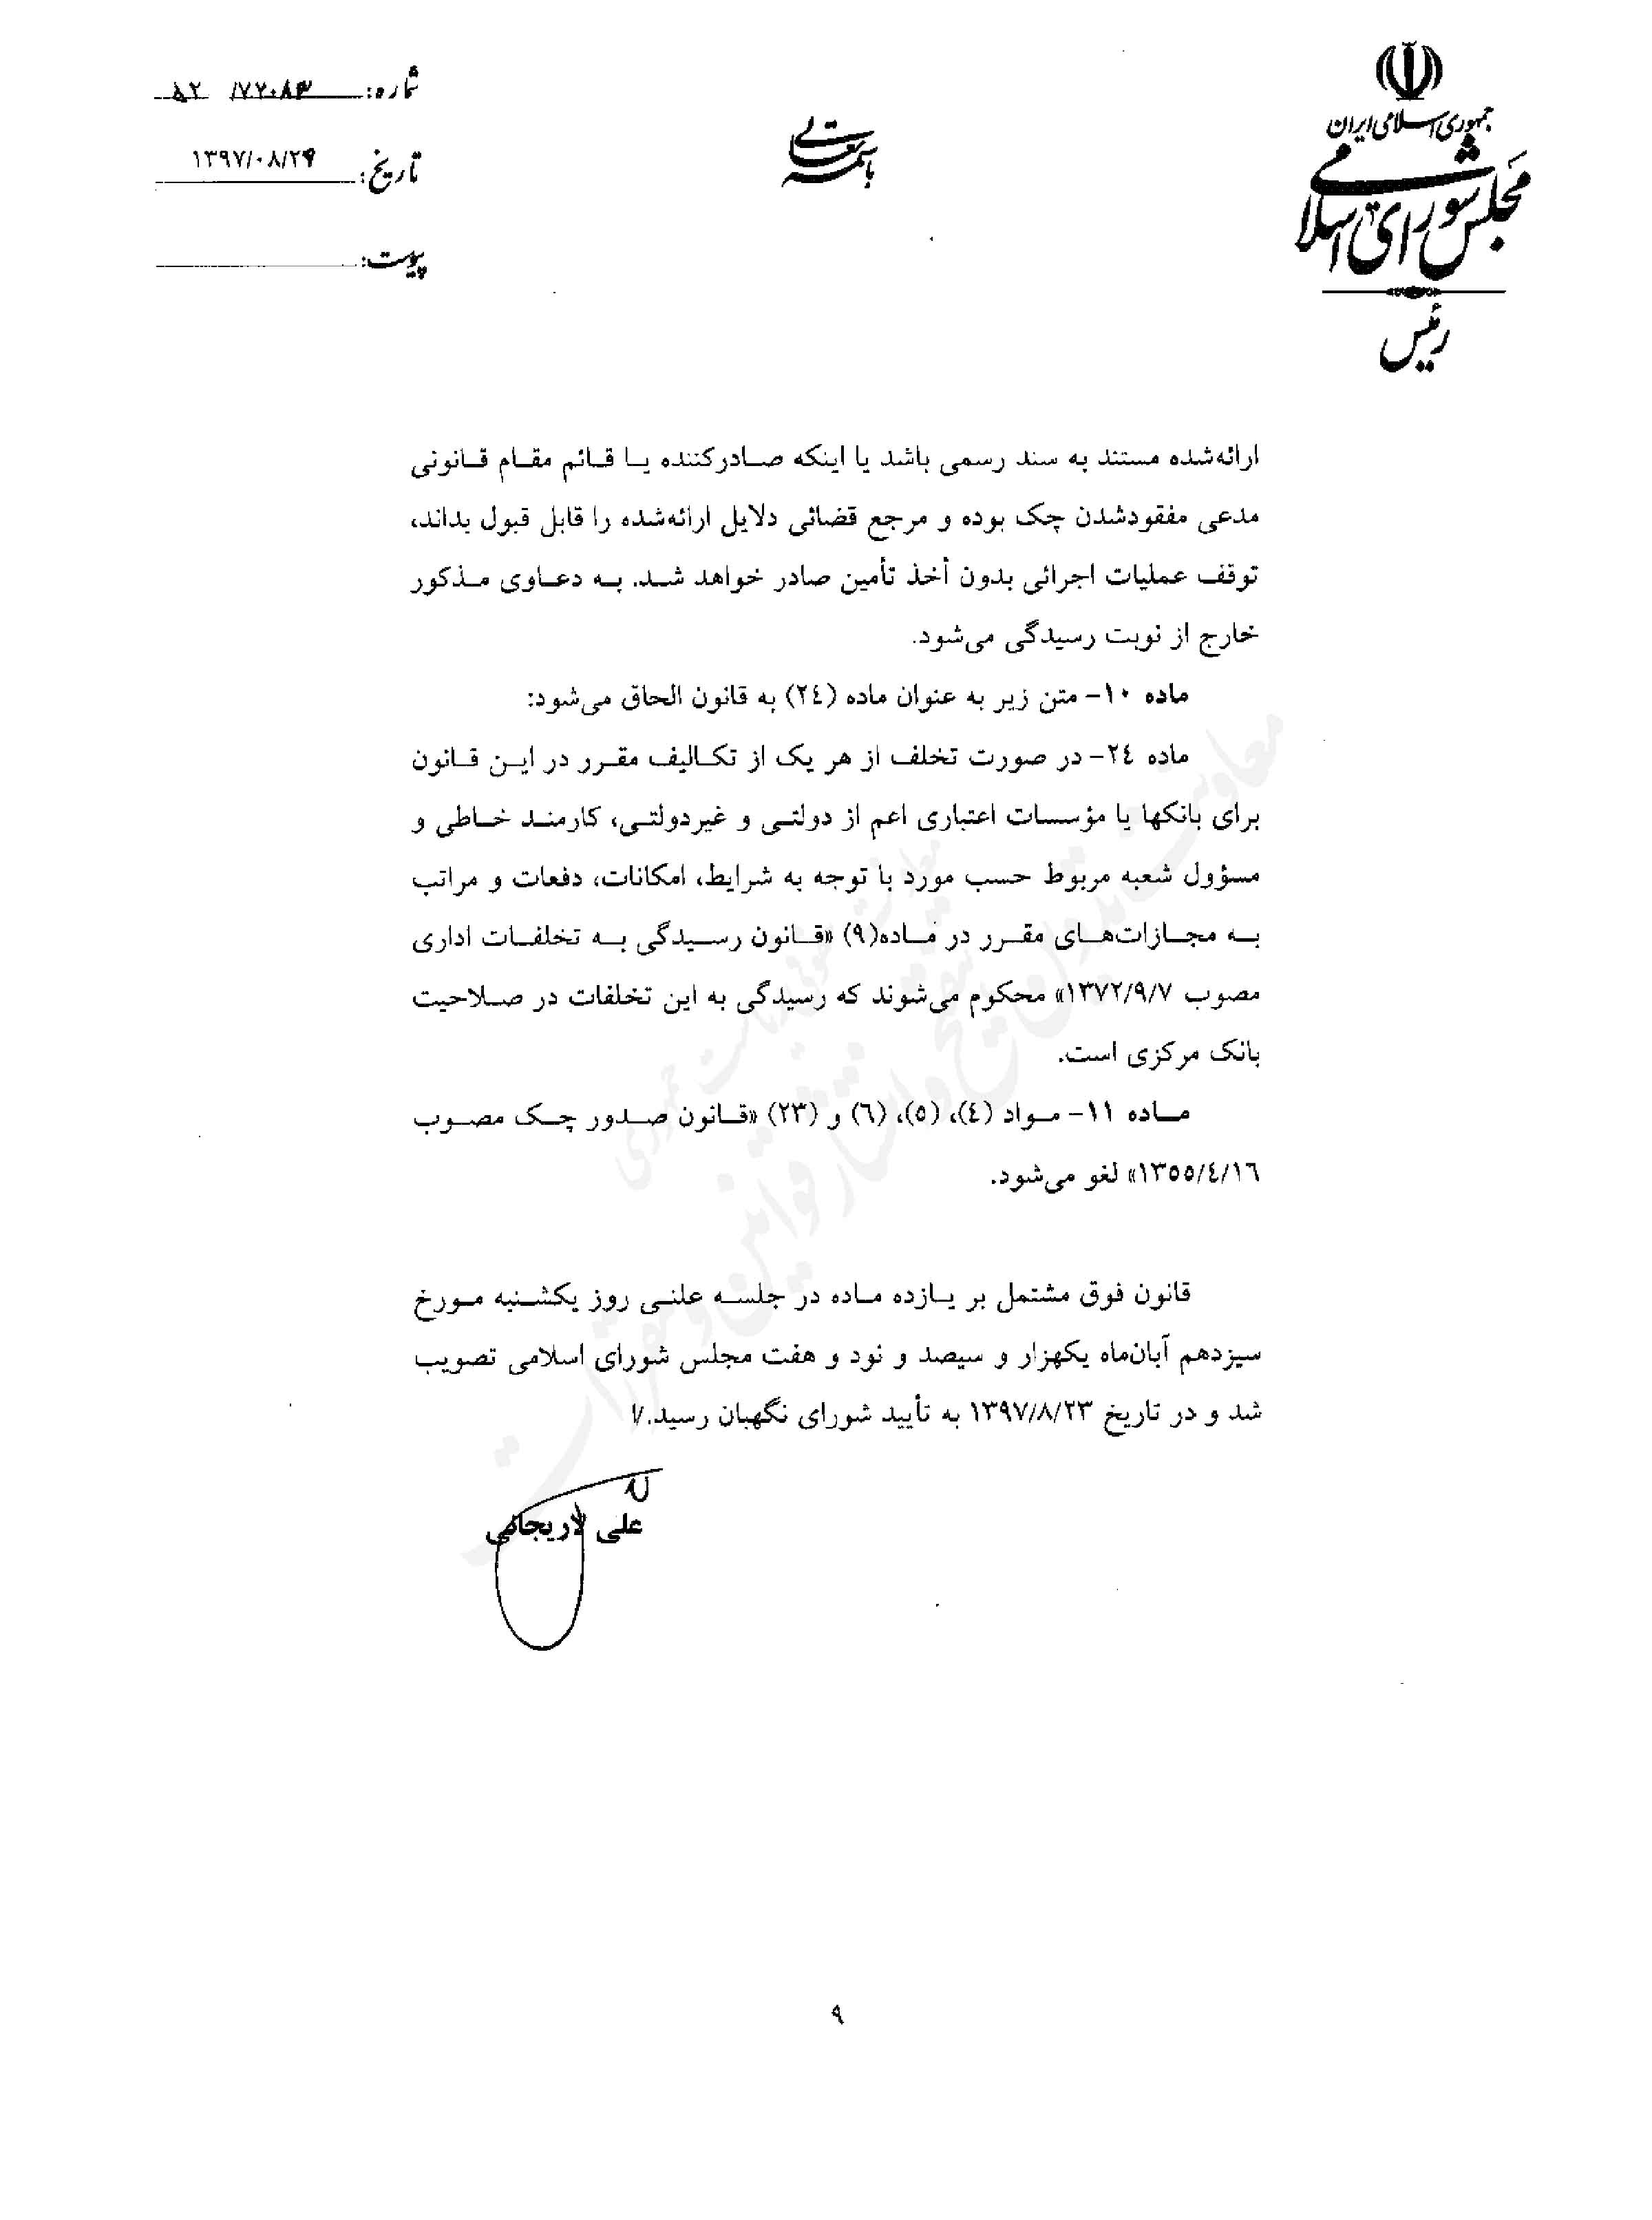 جمهوری اسلامی ایران
مجلس شورای اسلامی
رئیس
باسمه تعالی
شماره: ۷۲۰۸۳/ ۵۲
تاریخ: ۱۳۹۷/۰۸/۲۹
پیوست:
ارائه‌شده مستند به سند رسمی باشد یا اینکه صادرکننده یا قائم مقام قانونی
مدعی مفقودشدن چک بوده و مرجع قضائی دلایل ارائه‌شده را قابل قبول بداند،
توقف عملیات اجرائی بدون أخذ تأمین صادر خواهد شد. به دعاوی مذکور
خارج از نوبت رسیدگی می‌شود.
ماده ۱۰- متن زیر به عنوان ماده (۲٤) به قانون الحاق می‌شود:
ماده ۲٤- در صورت تخلف از هر یک از تکالیف مقرر در این قانون
برای بانکها یا مؤسسات اعتباری اعم از دولتی و غیردولتی، کارمند خاطی و
مسؤول شعبه مربوط حسب مورد با توجه به شرایط، امکانات، دفعات و مراتب
به مجازات‌های مقرر در ماده(۹) «قانون رسیدگی به تخلفات اداری
مصوب ۱۳۷۲/۹/۷» محکوم می‌شوند که رسیدگی به این تخلفات در صلاحیت
بانک مرکزی است.
ماده ۱۱- مواد (٤)، (٥)، (٦) و (۲۳) «قانون صدور چک مصوب
۱۳٥٥/٤/۱٦» لغو می‌شود.
قانون فوق مشتمل بر یازده ماده در جلسه علنی روز یکشنبه مورخ
سیزدهم آبان‌ماه یکهزار و سیصد و نود و هفت مجلس شورای اسلامی تصویب
شد و در تاریخ ۱۳۹۷/۸/۲۳ به تأیید شورای نگهبان رسید./۷
علی لاریجانی
۹
معاونت تدوین تنقیح و انتشار قوانین و مقررات
معاونت حقوقی ریاست جمهوری